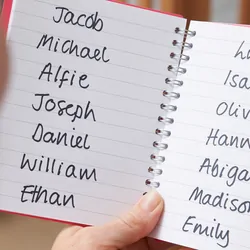 Jacob
Michael
Alfie
Joseph
Daniel
William
Ethan
Isa
Olivi
Hann
Abiga
Madison
Emily